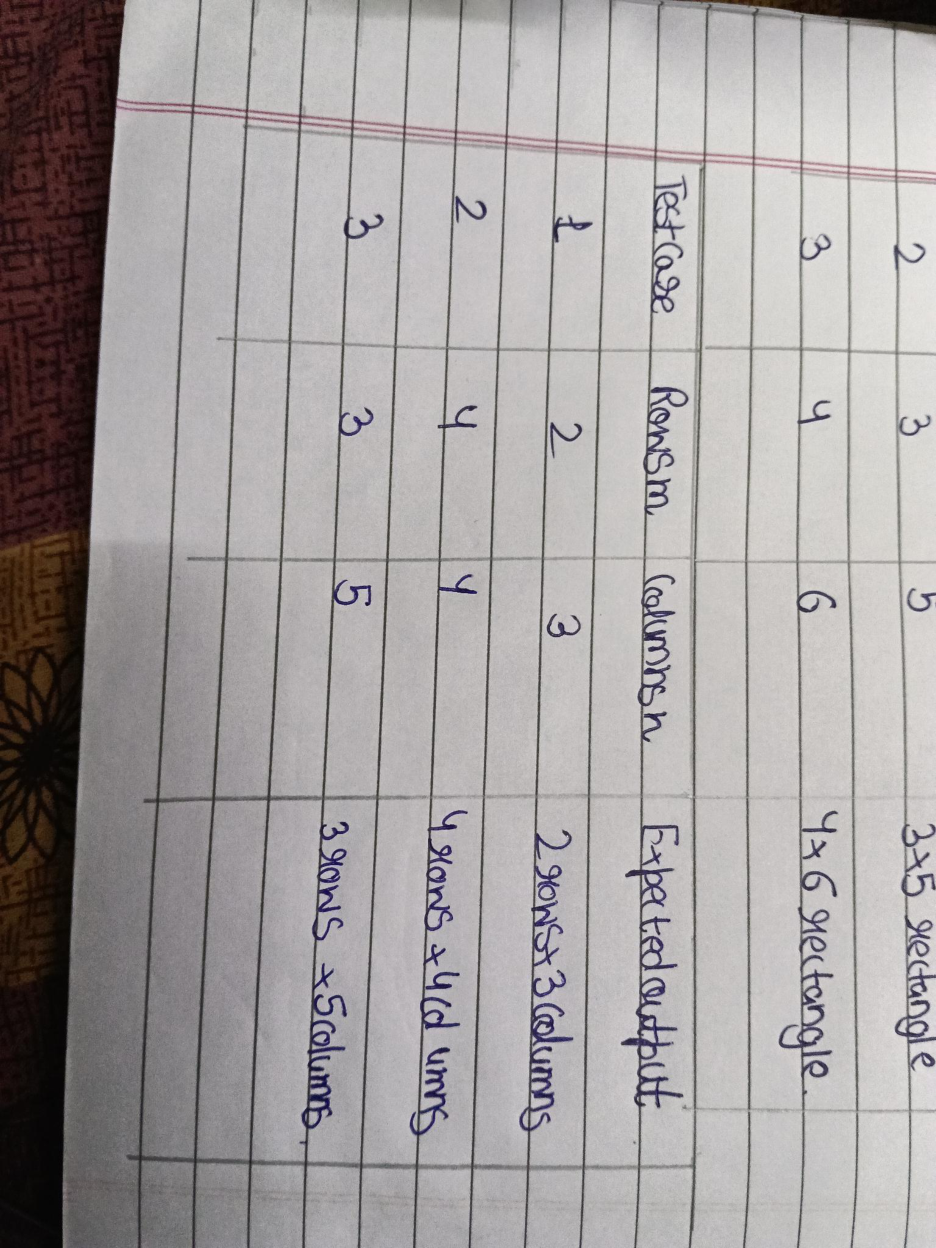 2 3 5 3×5 rectangle
3 4 6 4×6 rectangle.
Testcase Rowsm Columnsn Expected output
1 2 3 2 rows×3 Columns
2 4 4 4 rows×4 Columns
3 3 5 3 rows ×5 Columns.